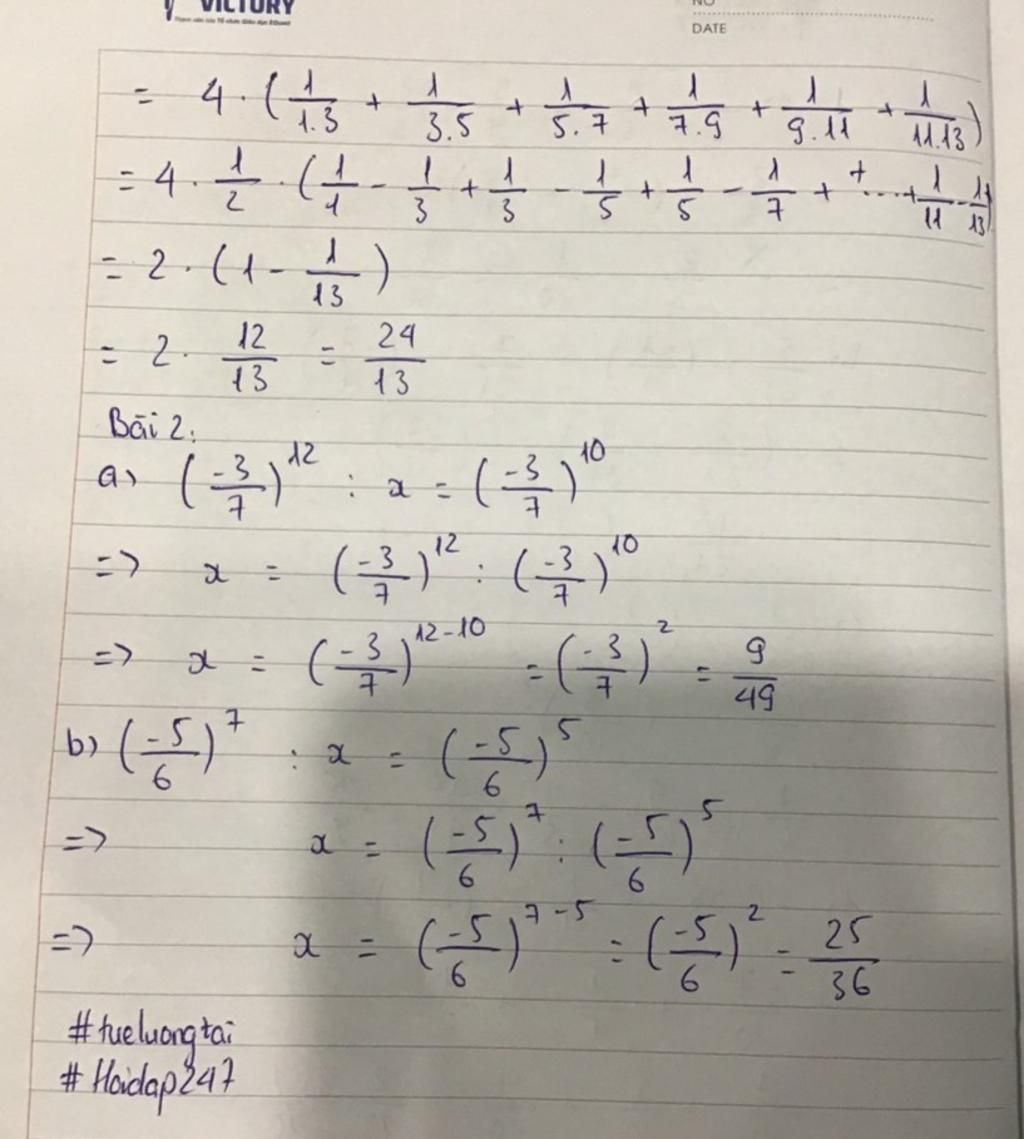 VICTORY
NO
DATE
= 4 · (1/1.3 + 1/3.5 + 1/5.7 + 1/7.9 + 1/9.11 + 1/11.13)
= 4 · 1/2 · (1/1 - 1/3 + 1/3 - 1/5 + 1/5 - 1/7 + + ... + 1/11 - 1/13)
= 2 · (1 - 1/13)
= 2 · 12/13 = 24/13
Bài 2:
a) (-3/7)^12 : x = (-3/7)^10
=> x = (-3/7)^12 : (-3/7)^10
=> x = (-3/7)^12-10 = (-3/7)^2 = 9/49
b) (-5/6)^7 : x = (-5/6)^5
=> x = (-5/6)^7 : (-5/6)^5
=> x = (-5/6)^7-5 = (-5/6)^2 = 25/36
#tueluongtai
#Hoidap247